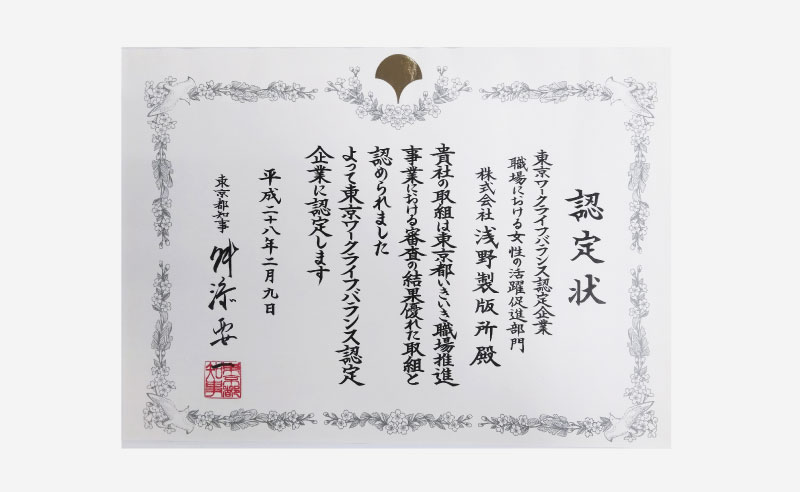 認定状
東京ワークライフバランス認定企業
職場における女性の活躍促進部門
株式会社 浅野製版所 殿
貴社の取組は東京都いきいき職場推進
事業における審査の結果優れた取組と
認められました
よって東京ワークライフバランス認定
企業に認定します
平成二十八年二月九日
東京都知事 舛添要一
東京都
知事